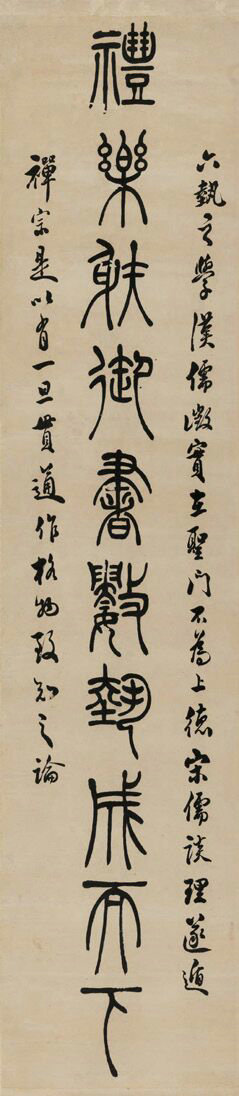 禮樂射御書數埶成而下
六埶之學漢儒徵實在聖門不為上德宋儒談理遂遁
禪宗是以有一旦貫通作格物致知之論